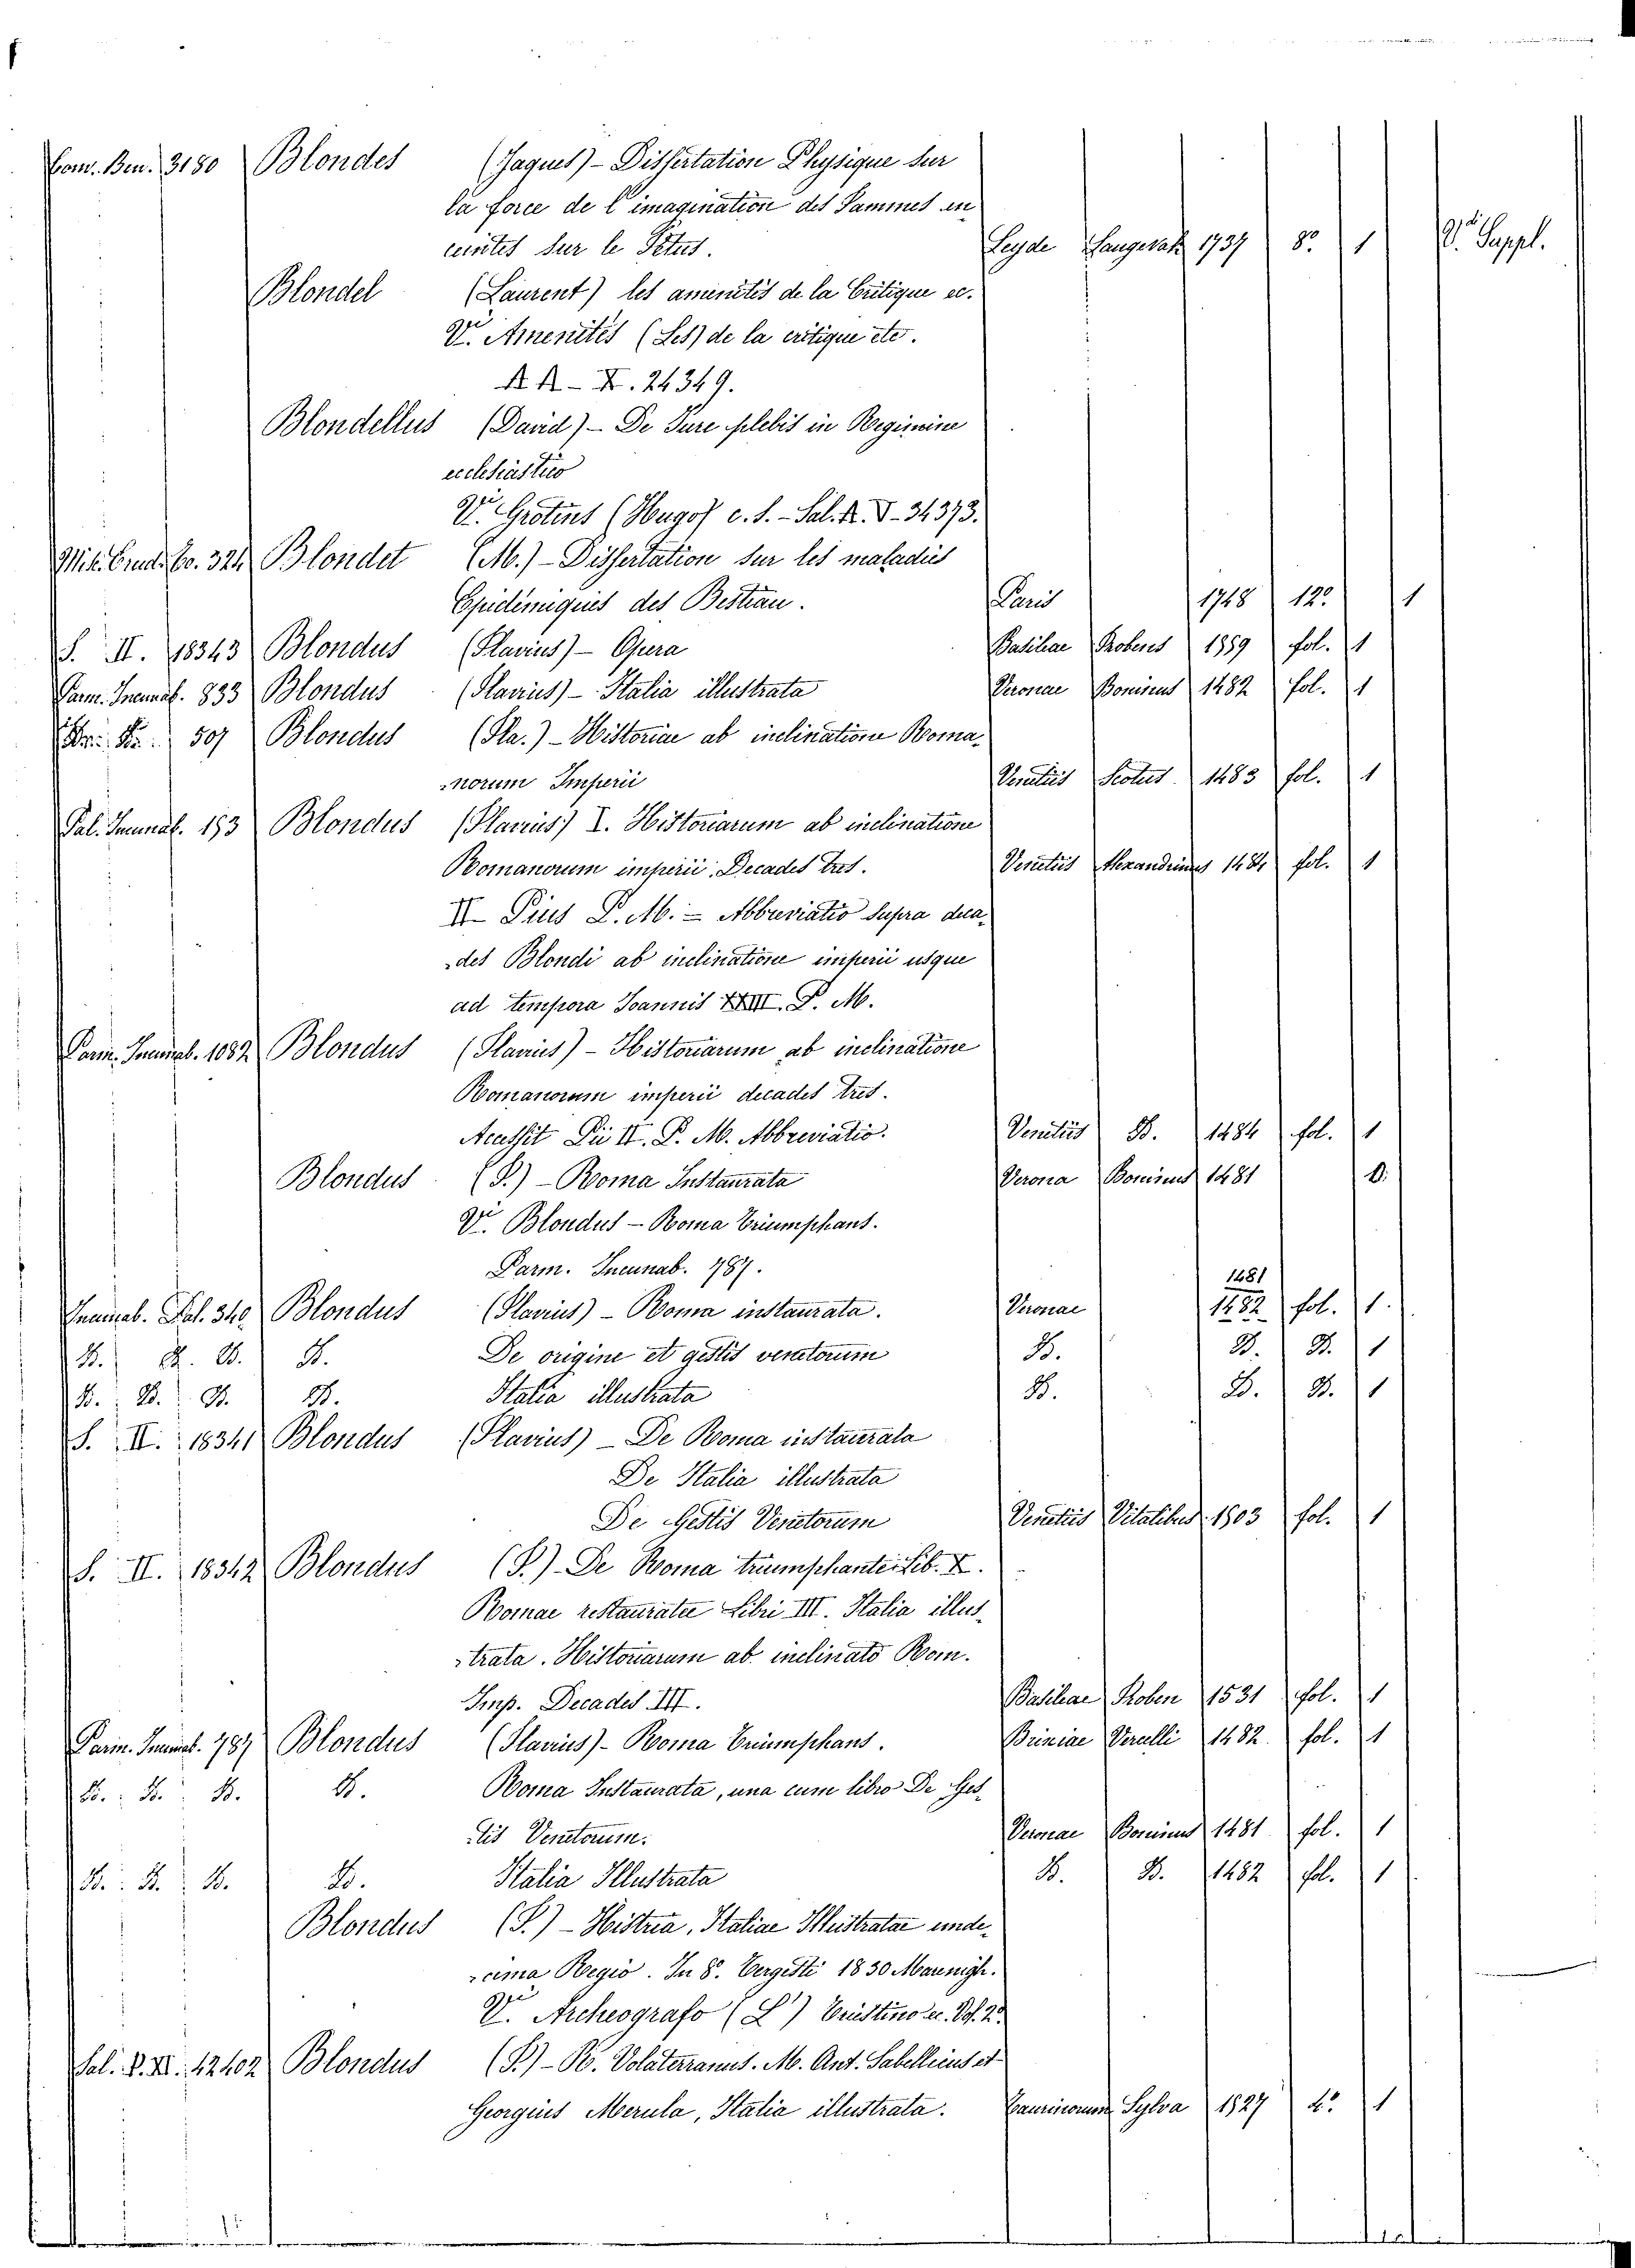 Com. Ben. 3180 Blondes (Jaques) - Dissertation Physique sur
la force de l'imagination des Sammes en
ceintes sur le Fetus. Leyde Langerak 1737 8º 1 Vdi Suppl.
Blondel (Laurent) les amenités de la Critique ec.
Vdi Amenités (Les) de la critique etc.
A A - X. 24349.
Blondellus (David) - De Jure plebis in Regimine
ecclesiastico
Vdi Grotius (Hugo) c. s. - Sal. R. V - 34373.
Blondet (M.) - Dissertation sur les maladies
Epidémiques des Bestiau. Paris 1748 12º 1
S. II. 18343 Blondus (Flavius) - Opera Basileae Frobenes 1559 fol. 1
Parm. Incunab. 833 Blondus (Flavius) - Italia illustrata Veronae Boninus 1482 fol. 1
507 Blondus (Fla.) - Historiae ab inclinatione Roma-
-norum Imperii Venetiis Scotus 1483 fol. 1
Pal. Incunab. 193 Blondus (Flavius) I. Historiarum ab inclinatione
Romanorum imperii Decades tres. Venetiis Alexandrinus 1484 fol. 1
II - Pius P. M. - Abbreviatio supra deca-
-des Blondi ab inclinatione imperii usque
ad tempora Joannis XXIII. P. M.
Parm. Incunab. 1082 Blondus (Flavius) - Historiarum ab inclinatione
Romanorum imperii decades tres.
Acessit Pii II. P. M. Abbreviatio. Venetiis D. 1484 fol. 1
Blondus (F.) - Roma Instaurata Verona Boninus 1481 0.
Vdi Blondus - Roma Triumphans.
Parm. Incunab. 787.
1481
Incunab. Pal. 340 Blondus (Flavius) - Roma instaurata. Veronae 1482 fol. 1.
D. D. D. D. De origine et gestis venetorum D. D. D. 1
D. D. D. D. Italia illustrata D. D. D. 1
S. II. 18341 Blondus (Flavius) - De Roma instaurata
De Italia illustrata
De Gestis Venetorum Venetiis Vitalibus 1503 fol. 1
S. II. 18342 Blondus (F.) - De Roma triumphante Lib. X.
Romae restauratae Libri III. Italia illus-
-trata. Historiarum ab inclinato Rom.
Imp. Decades III. Basileae Froben 1531 fol. 1
Parm. Incunab. 787 Blondus (Flavius) - Roma Triumphans. Brixiae Vercelli 1482 fol. 1
D. D. D. D. Roma Instaurata, una cum libro De Ges-
-tis Venetorum. Veronae Boninus 1481 fol. 1
D. D. D. D. Italia Illustrata D. D. 1482 fol. 1
Blondus (F.) - Histria, Italiae Illustratae unde-
-cima Regio. In 8º. Tergesti 1830 Marenigh.
Vdi Archeografo (L') Triestino ec. Vol. 2º
Sal. P. XI. 42402 Blondus (F.) - R. Volaterranus. M. Ant. Sabellicus et
Georgius Merula, Italia illustrata. Taurinorum Sylva 1527 4º 1